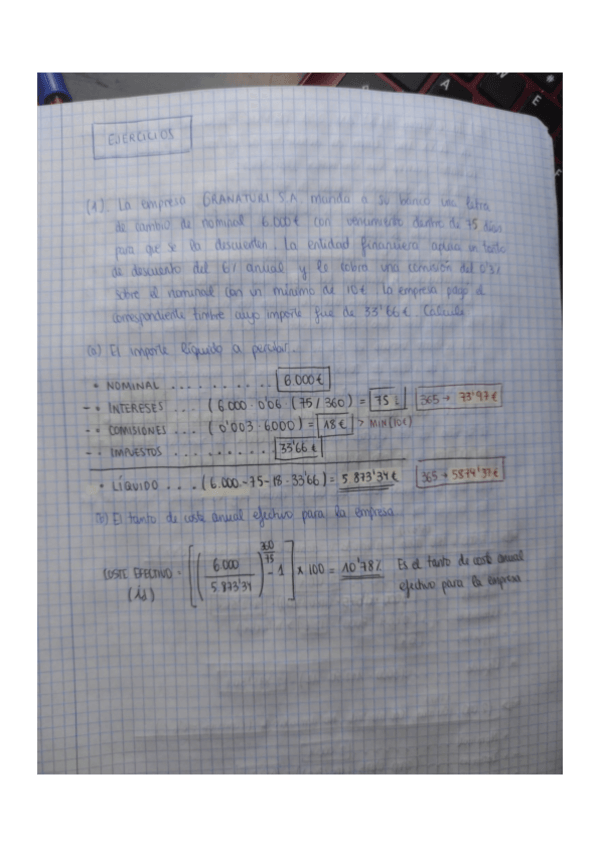 EJERCICIOS
(1). La empresa GRANATURI S.A. manda a su banco una letra
de cambio de nominal 6.000€ con vencimiento dentro de 75 días
para que se la descuenten. La entidad financiera aplica un tanto
de descuento del 6% anual y le cobra una comisión del 0'3%
sobre el nominal con un mínimo de 10€. La empresa pagó el
correspondiente timbre cuyo importe fue de 33'66€. Calcula
(a) El importe líquido a percibir.
• NOMINAL .......... 6.000€
- • INTERESES ... (6.000 · 0'06 (75/360) = 75 365 → 73'97€
- • COMISIONES ... (0'003 · 6000) = 18€ > MIN(10€)
- • IMPUESTOS ......... 33'66€
• LÍQUIDO ... (6.000-75-18-33'66) = 5.873'34€ 365 → 5874'37€
(b) El tanto de coste anual efectivo para la empresa
COSTE EFECTIVO = [((6.000 / 5.873'34)^(360/75) - 1] x 100 = 10'78% Es el tanto de coste anual
efectivo para la empresa